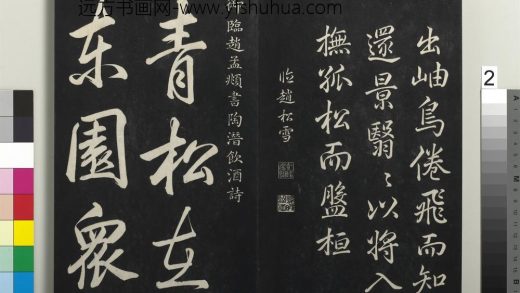 远方书画网-www.yfshuhua.com
出岫鳥倦飛而知
還景翳〻以將入
撫孤松而盤桓
臨趙松雪
御臨趙孟頫書陶潛飲酒詩
青松在
東園衆
2